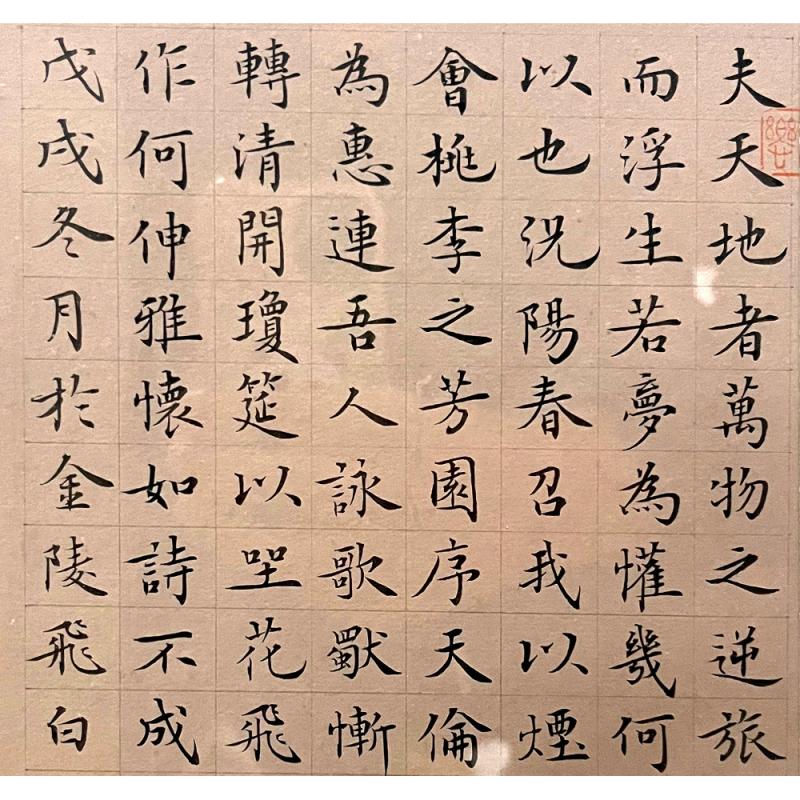 夫天地者萬物之逆旅
而浮生若夢為懽幾何
以也況陽春召我以煙
會桃李之芳園序天倫
為惠連吾人詠歌獨慚
轉清開瓊筵以坐花飛
作何伸雅懷如詩不成
戊戌冬月於金陵飛白